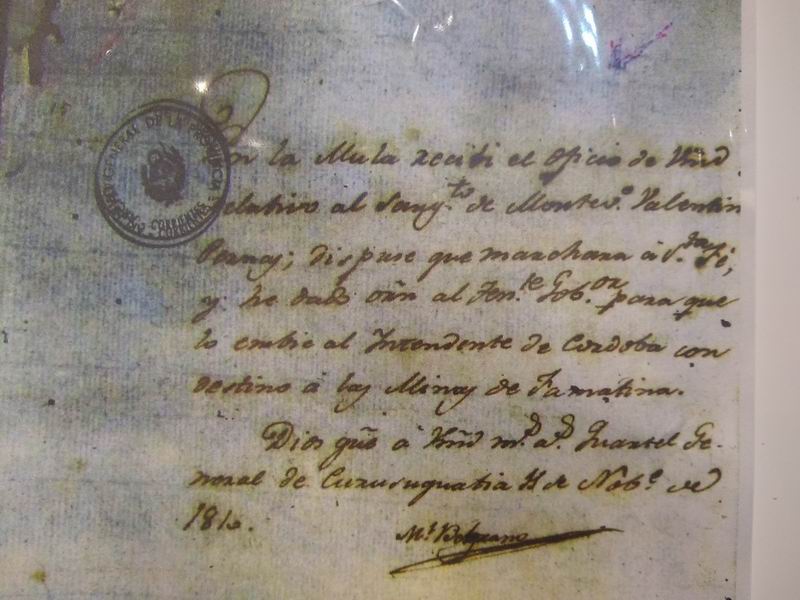 En la Mula recibi el oficio de Vmd
relativo al Sarg.to de Montev.o Valentin
dispuse que marchara à S.ta Fé,
y he dado orñ al Ten.te Gob.or para que
lo embie al Intendente de Cordoba con
destino à las Minas de Famatina.
Dios güe à Vmd m.s a.s Quartel Ge-
neral de Curusuquatia de Nob.e de
1810.
M.l Belgrano
GENERAL DE LA PROVINCIA
CORRIENTES